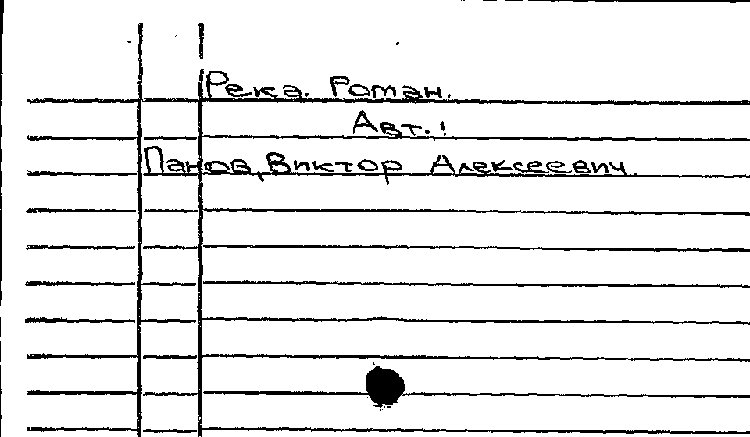 Река. Роман.
Авт.:
Панов, Виктор Алексеевич.